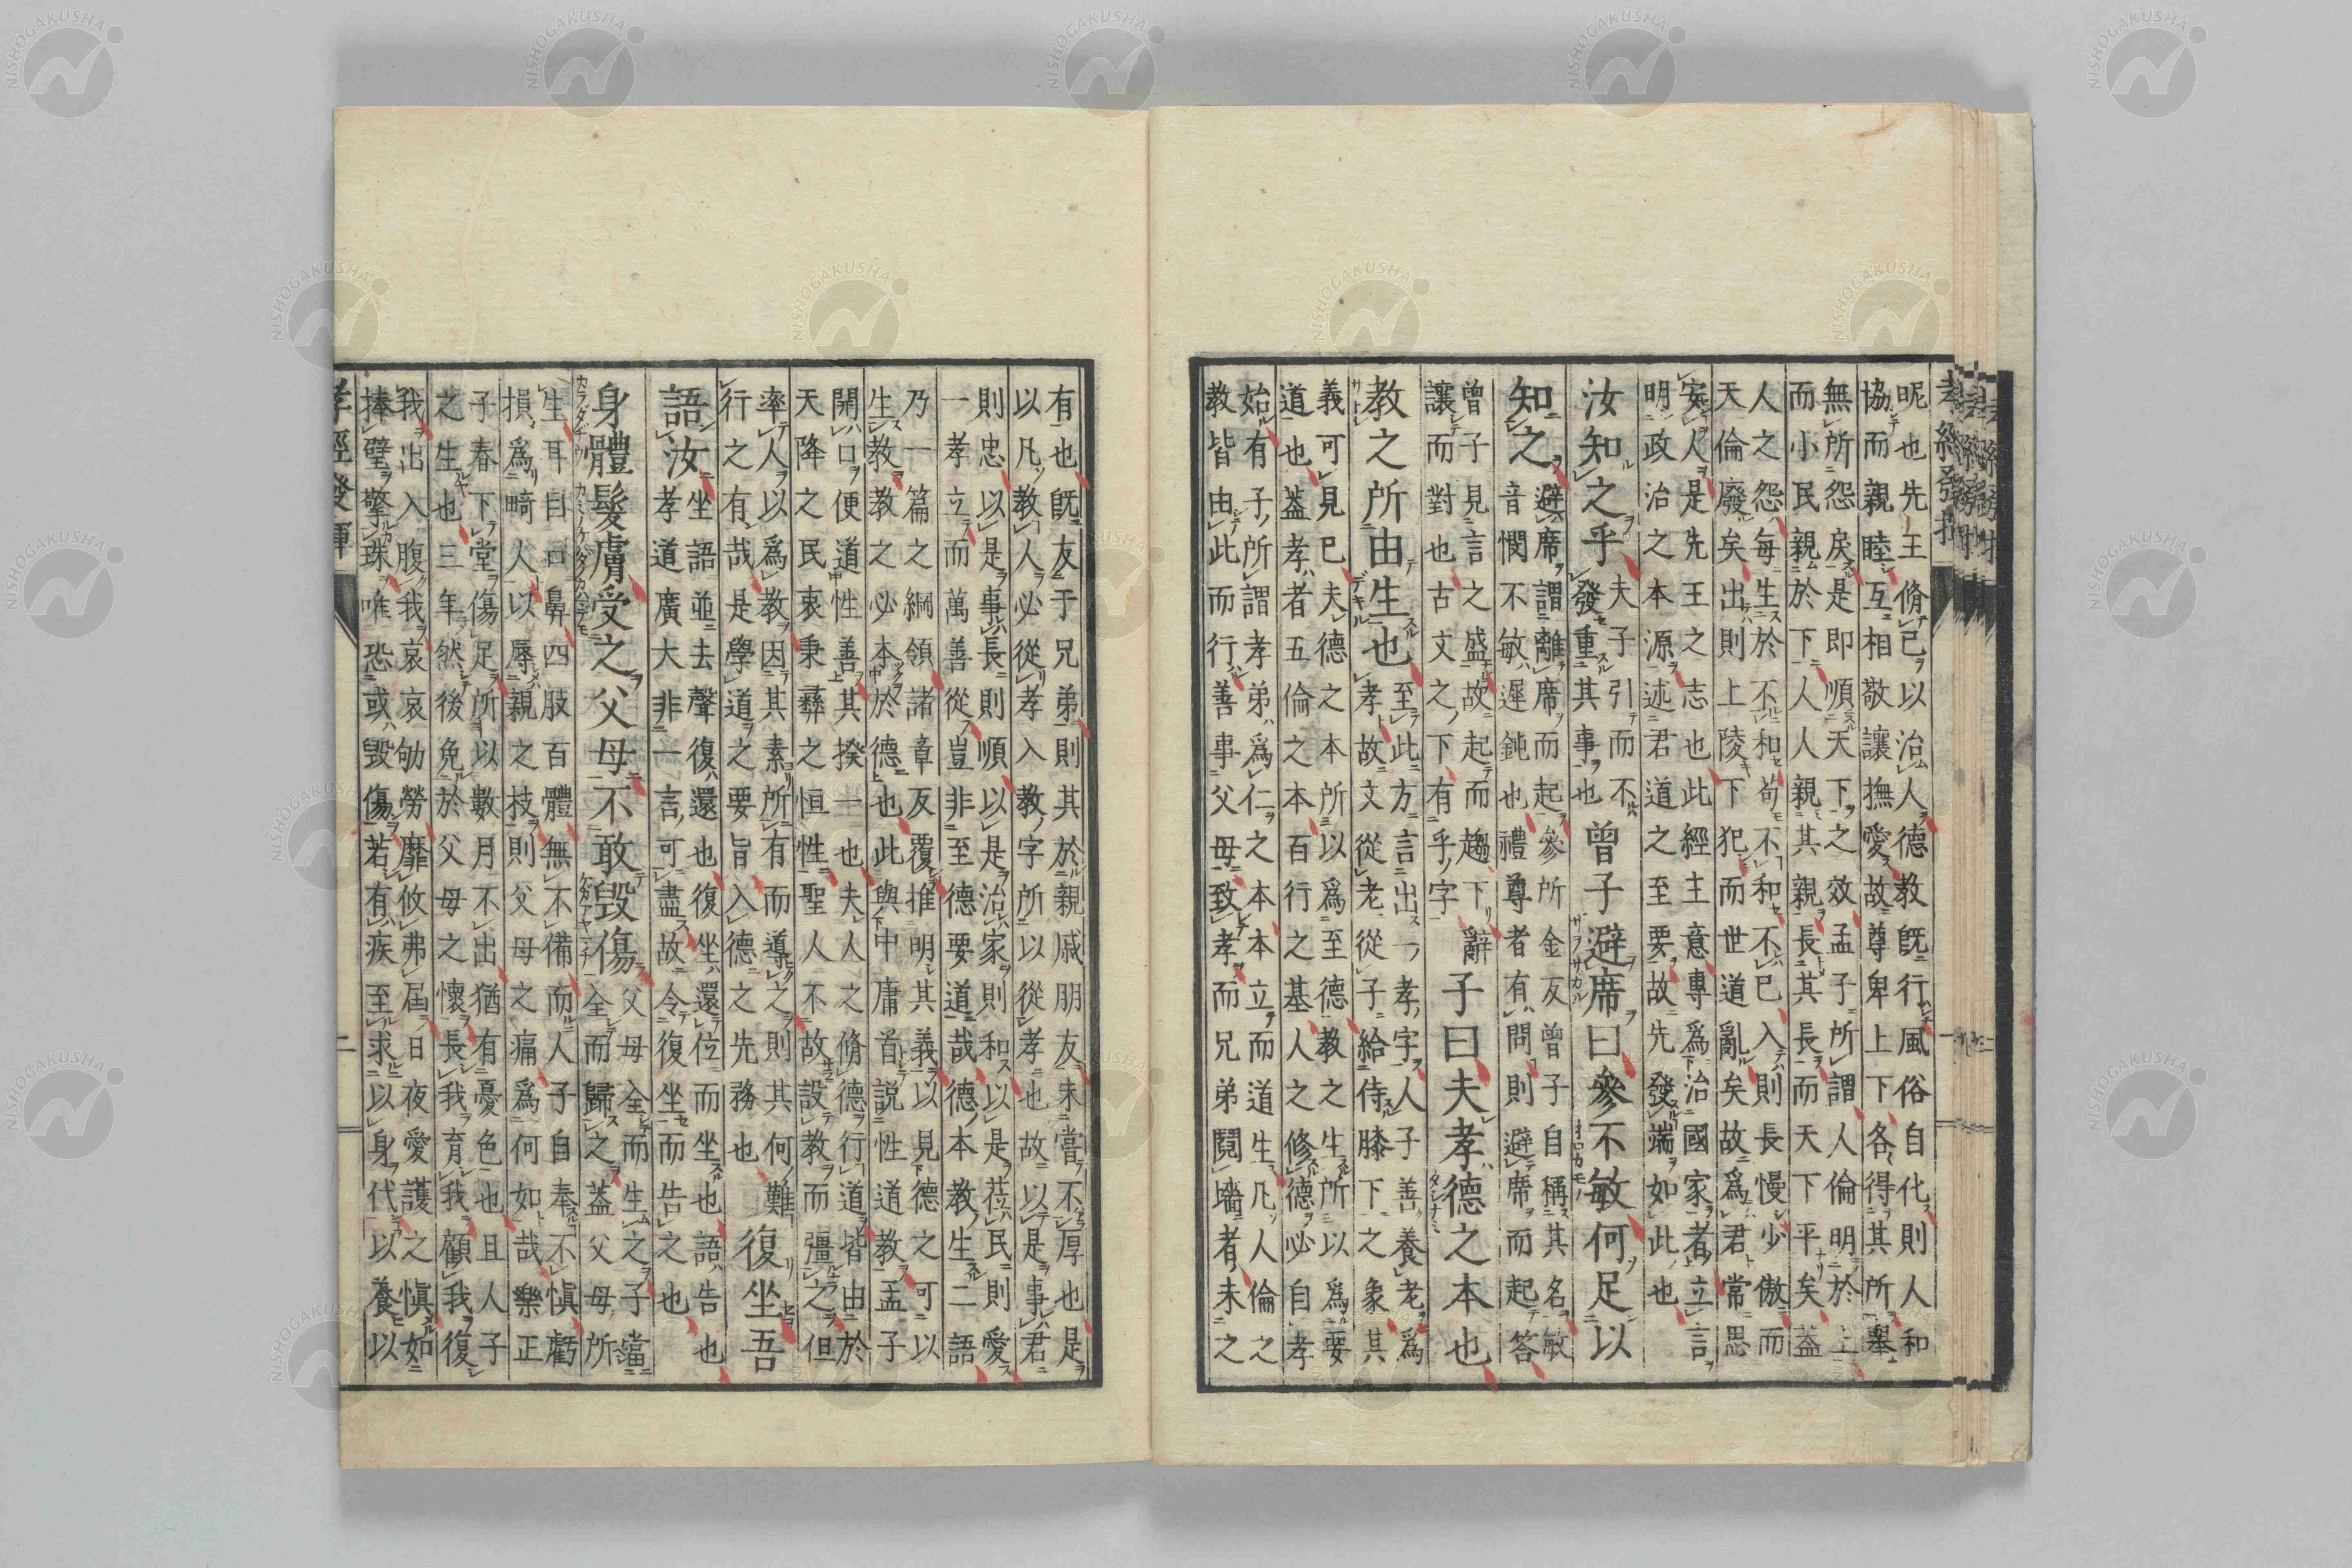 孝經發揮
昵也先王脩己以治人德教旣行風俗自化則人和
協而親睦互相敬讓撫愛故尊卑上下各得其所舉
無所怨戾是即順天下之效孟子所謂人倫明於上
而小民親於下人人親其親長其長而天下平矣蓋
人之怨每生於不和苟不和不已入則長慢少傲而
天倫廢矣出則上陵下犯而世道亂矣故爲君常思
安人是先王之志也此經主意專爲治國家者立言
明政治之本源述君道之至要故先發端如此也
汝知之乎
夫子引而不
發重其事也
曾子避席曰參不敏何足以
知之
避席謂離席而起參所金反曾子自稱其名敏
音憫不敏遲鈍也禮尊者有問則避席而起答
曾子見言之盛故起而趨下辭
讓而對也古文之下有乎字
子曰夫孝德之本也
教之所由生也
至此方言出一孝字人子善養老爲
孝故文從老從子給侍膝下之象其
義可見已夫德之本所以爲至德教之生所以爲要
道也蓋孝者五倫之本百行之基人之修德必自孝
始有子所謂孝弟爲仁之本本立而道生凡人倫之
教皆由此而行善事父母致孝而兄弟鬩墻者未之
有也旣友于兄弟則其於親戚朋友未嘗不厚也是
以凡教人必從孝入教字所以從孝也故以是事君
則忠以是事長則順以是治家則和以是莅民則愛
一孝立而萬善從豈非至德要道哉德本教生二語
乃一篇之綱領諸章反覆推明其義以見德之可以
生教教之必本於德也此與中庸首說性道教孟子
開口便道性善其揆一也夫人之脩德行道皆由於
天降之民衷秉彝之恒性聖人不故設教而彊之但
率人以爲教因其素所有而導之則其何難
行之有哉是學道之要旨入德之先務也
復坐吾
語汝
坐語並去聲復還也復坐還位而坐也語告也
孝道廣大非一言可盡故令復坐而告之也
身體髮膚受之父母不敢毀傷
父母全而生之子當
全而歸之蓋父母所
生耳目口鼻四肢百體無不備而人子自奉不愼虧
損爲畸人以辱親之技則父母之痛爲何如哉樂正
子春下堂傷足所以數月不出猶有憂色也且人子
之生也三年然後免於父母之懷長我育我顧我復
我出入腹我哀哀劬勞靡攸弗屆日夜愛護之愼如
捧璧擎珠唯恐或毀傷若有疾至求以身代以養以
孝經發揮
二